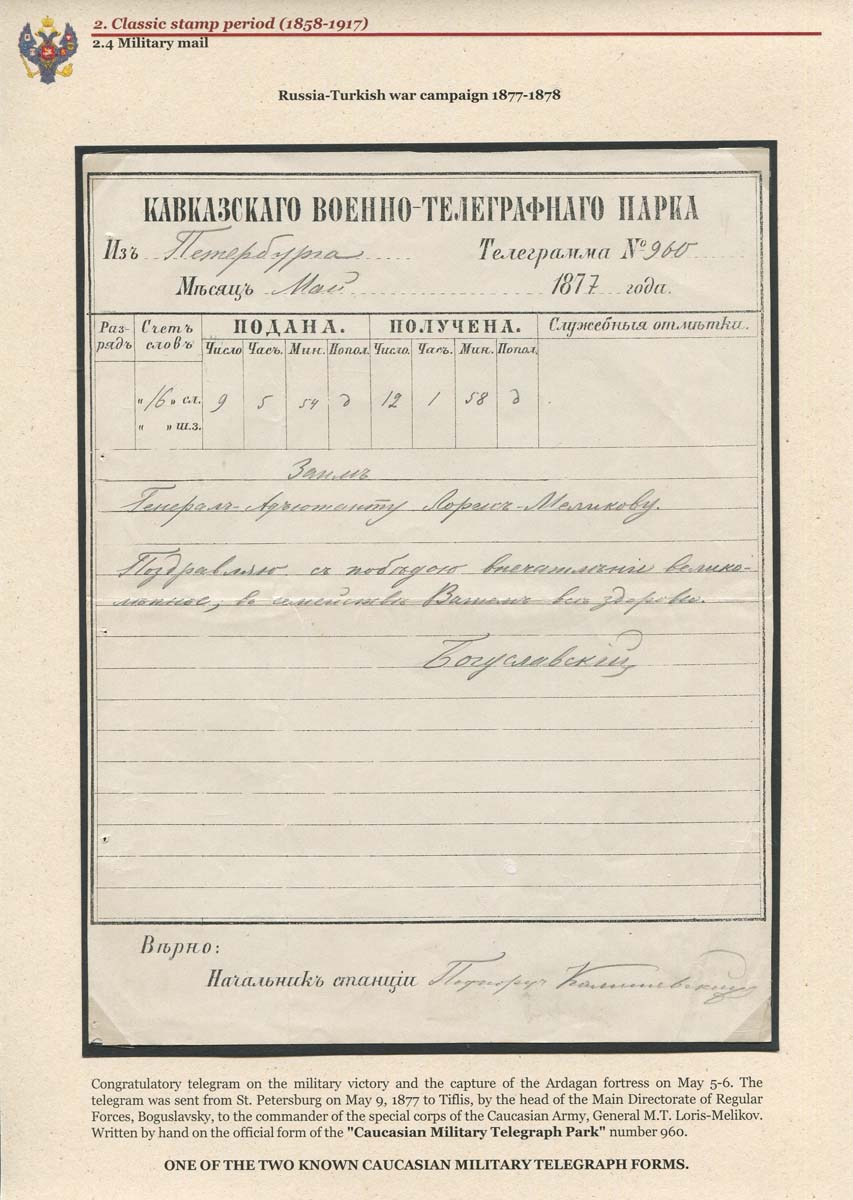 2. Classic stamp period (1858-1917)
2.4 Military mail
Russia-Turkish war campaign 1877-1878
КАВКАЗСКАГО ВОЕННО-ТЕЛЕГРАФНАГО ПАРКА
Изъ Петербурга Телеграмма № 960
Мѣсяцъ Май 1877 года.
Раз- Счетъ ПОДАНА. ПОЛУЧЕНА. Служебныя отмѣтки.
рядъ словъ Число Часъ. Мин. Попол. Число. Часъ. Мин. Попол.
„ 16 „ сл. 9 5 54 д 12 1 58 д
„ „ ш.з.
Заимъ
Генералъ-Адъютанту Лорисъ-Меликову.
Поздравляю съ побѣдою впечатлѣніе велико-
лѣпное, въ семействѣ Вашемъ всѣ здоровы.
Богуславскій
Вѣрно:
Начальникъ станціи Подпоруч
Congratulatory telegram on the military victory and the capture of the Ardagan fortress on May 5-6. The
telegram was sent from St. Petersburg on May 9, 1877 to Tiflis, by the head of the Main Directorate of Regular
Forces, Boguslavsky, to the commander of the special corps of the Caucasian Army, General M.T. Loris-Melikov.
Written by hand on the official form of the "Caucasian Military Telegraph Park" number 960.
ONE OF THE TWO KNOWN CAUCASIAN MILITARY TELEGRAPH FORMS.